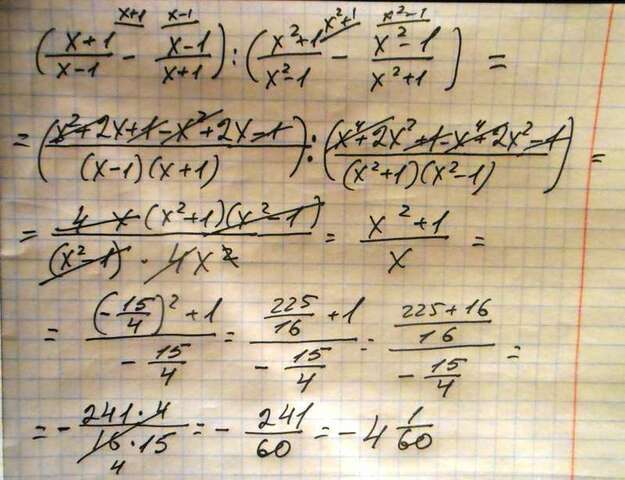 (x+1/x-1 ^x+1 - x-1/x+1 ^x-1) : (x²+1/x²-1 ^x²+1 - x²-1/x²+1 ^x²-1) =
= (x²+2x+1-x²+2x-1/(x-1)(x+1)) : (x⁴+2x²+1-x⁴+2x²-1/(x²+1)(x²-1)) =
= 4x(x²+1)(x²-1)/(x²-1)·4x² = x²+1/x =
= (-15/4)²+1/-15/4 = 225/16+1/-15/4 = 225+16/16/-15/4 =
= -241·4/16·15 4 = -241/60 = -4 1/60